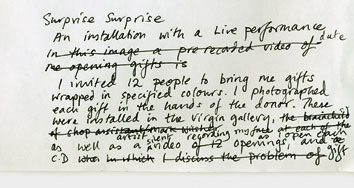 Surprise Surprise
An installation with a Live performance
In this image a pre recorded video of date
me opening gifts is
I invited 12 people to bring me gifts
wrapped in specified colours. I photographed
each gift in the hands of the donor. These
were installed in the Virgin gallery, the
of shop assistant
artist silent regarding my face as I open each
as well as a video of 12 openings, and gift
C.D in which I discuss the problem of gift